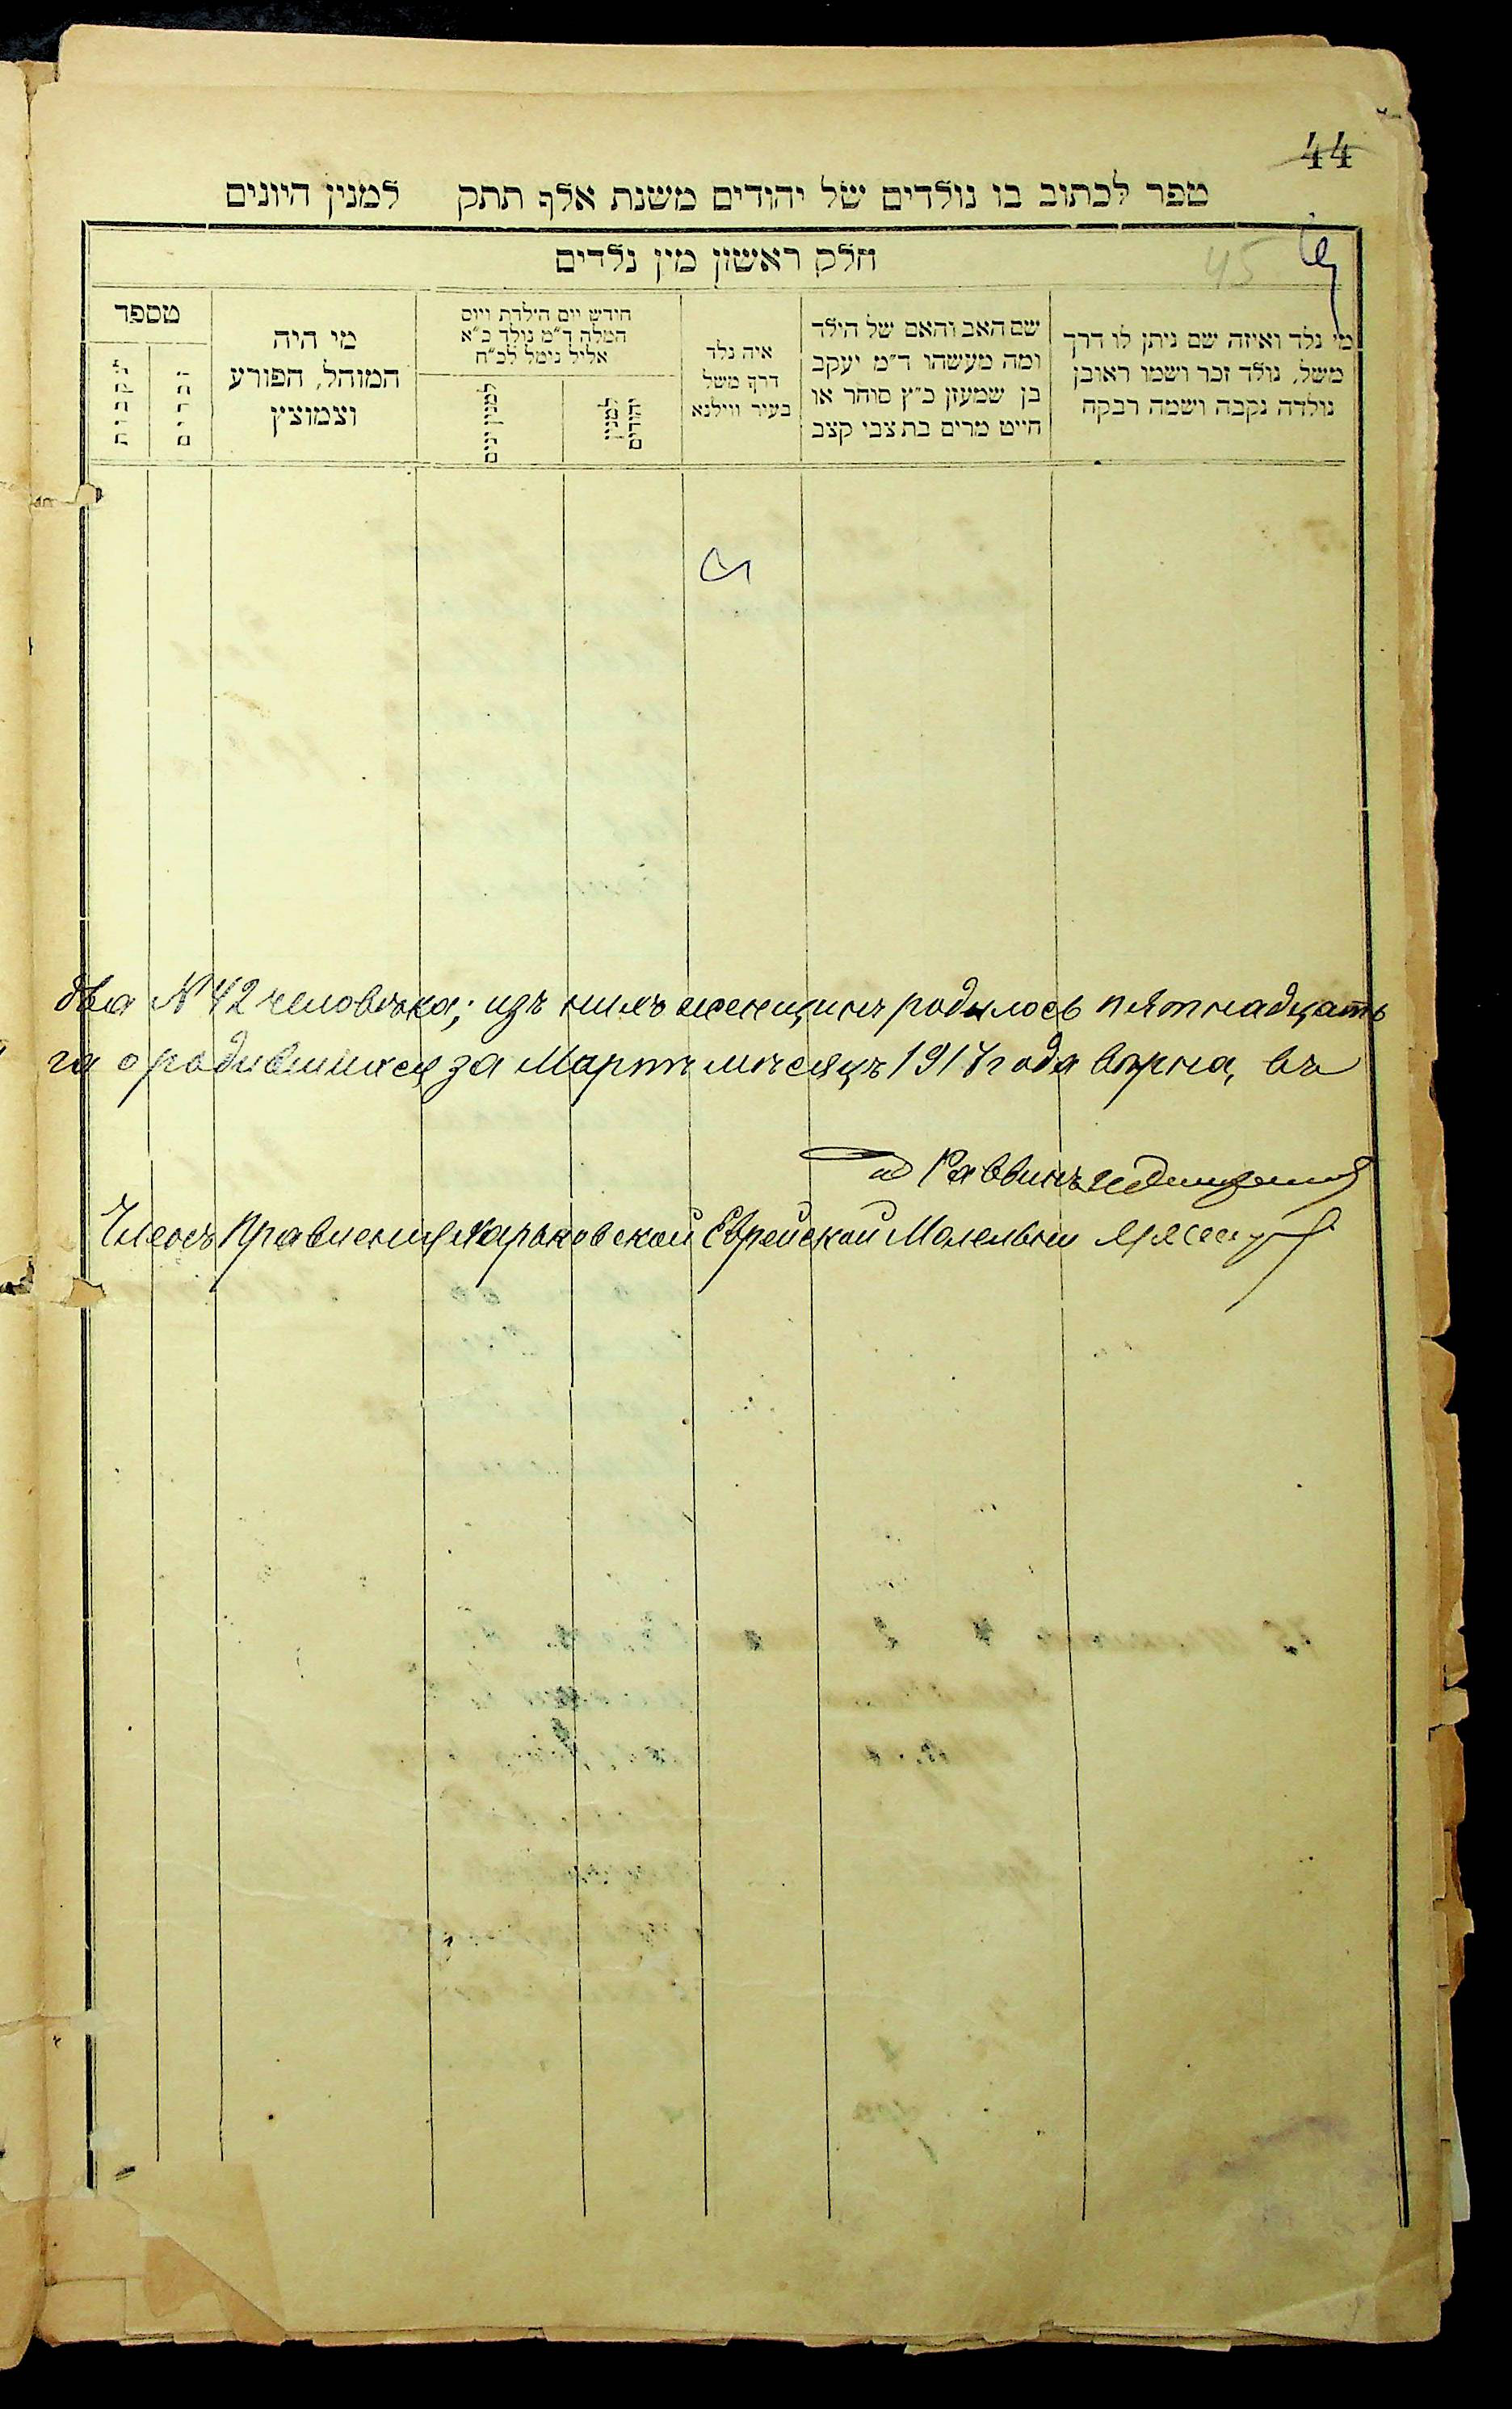 44
ספר לכתוב בו נולדים של יהודים משנת אלף תתק למנין היונים
45
חלק ראשון מין נלדים
מי נלד ואיזה שם ניתן לו דרך
משל, נולד זכר ושמו ראובן
נולדה נקבה ושמה רבקה
שם האב והאם של הילד
ומה מעשהו ד"מ יעקב
בן שמעון כ"ץ סוחר או
חייט מרים בת צבי קצב
איה נלד
דרך משל
בעיר ווילנא
חידש יום הילדת ויום
המלה ד"מ נולד כ"א
אליל נימל לכ"ח
למנין יהודים
למנין יונים
מי היה
המוהל, הפורע
וצמוצץ
מספר
זכרים
נקבות
два №42 человѣка; изъ нихъ женщинъ родилось пятнадцать
га о родившихся за Мартъ мѣсяцъ 1917 года вѣрна, въ
Раввинъ
Членъ Правленія Харьковской Еврейской Молельни